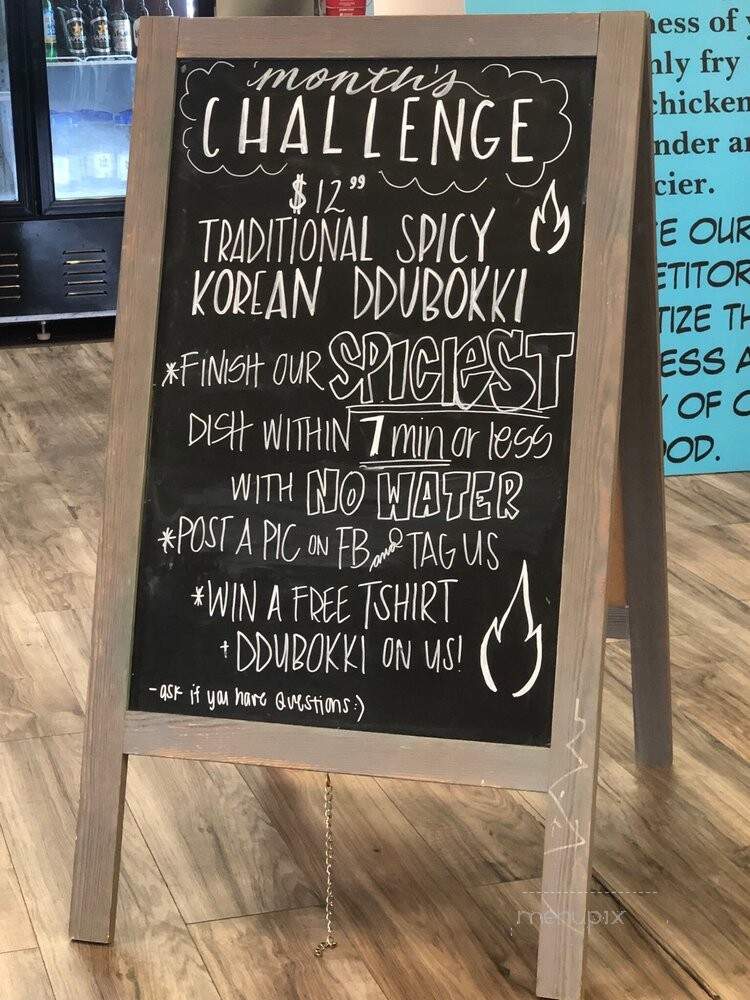 month's
CHALLENGE
$12⁹⁹
TRADITIONAL SPICY
KOREAN DDUBOKKI
*FINISH OUR SPICIEST
DISH WITHIN 7 min or less
WITH NO WATER
*POST A PIC ON FB and TAG US
*WIN A FREE TSHIRT
+ DDUBOKKI ON US!
-ask if you have Questions:)
ness of
nly fry
chicken
nder
cier.
OUR
ETITOR
TIZE
ESS
OF
OOD.
menupix